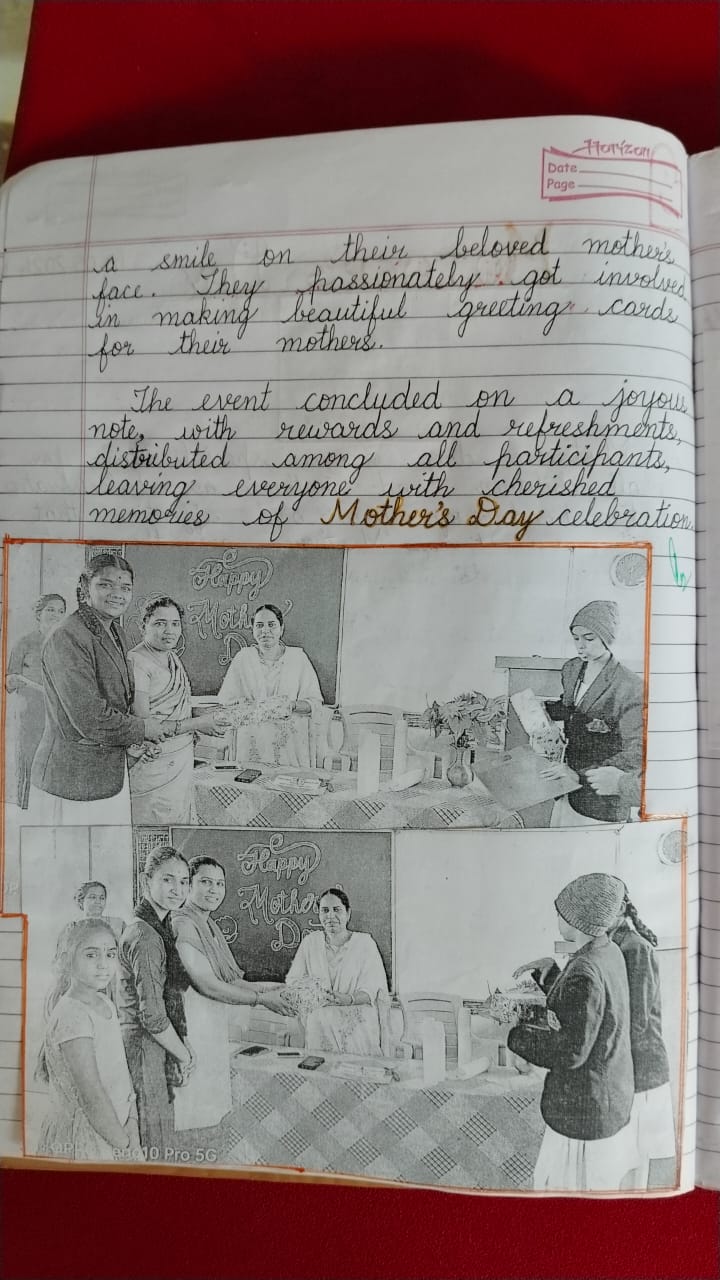 Horizon
Date
Page
a smile on their beloved mother's
face. They passionately got involved
in making beautiful greeting cards
for their mothers.
The event concluded on a joyous
note, with rewards and refreshments,
distributed among all participants,
leaving everyone with cherished
memories of Mother's Day celebration
Happy
Mothe
D
Happy
Mothe
Da
10 Pro 5G